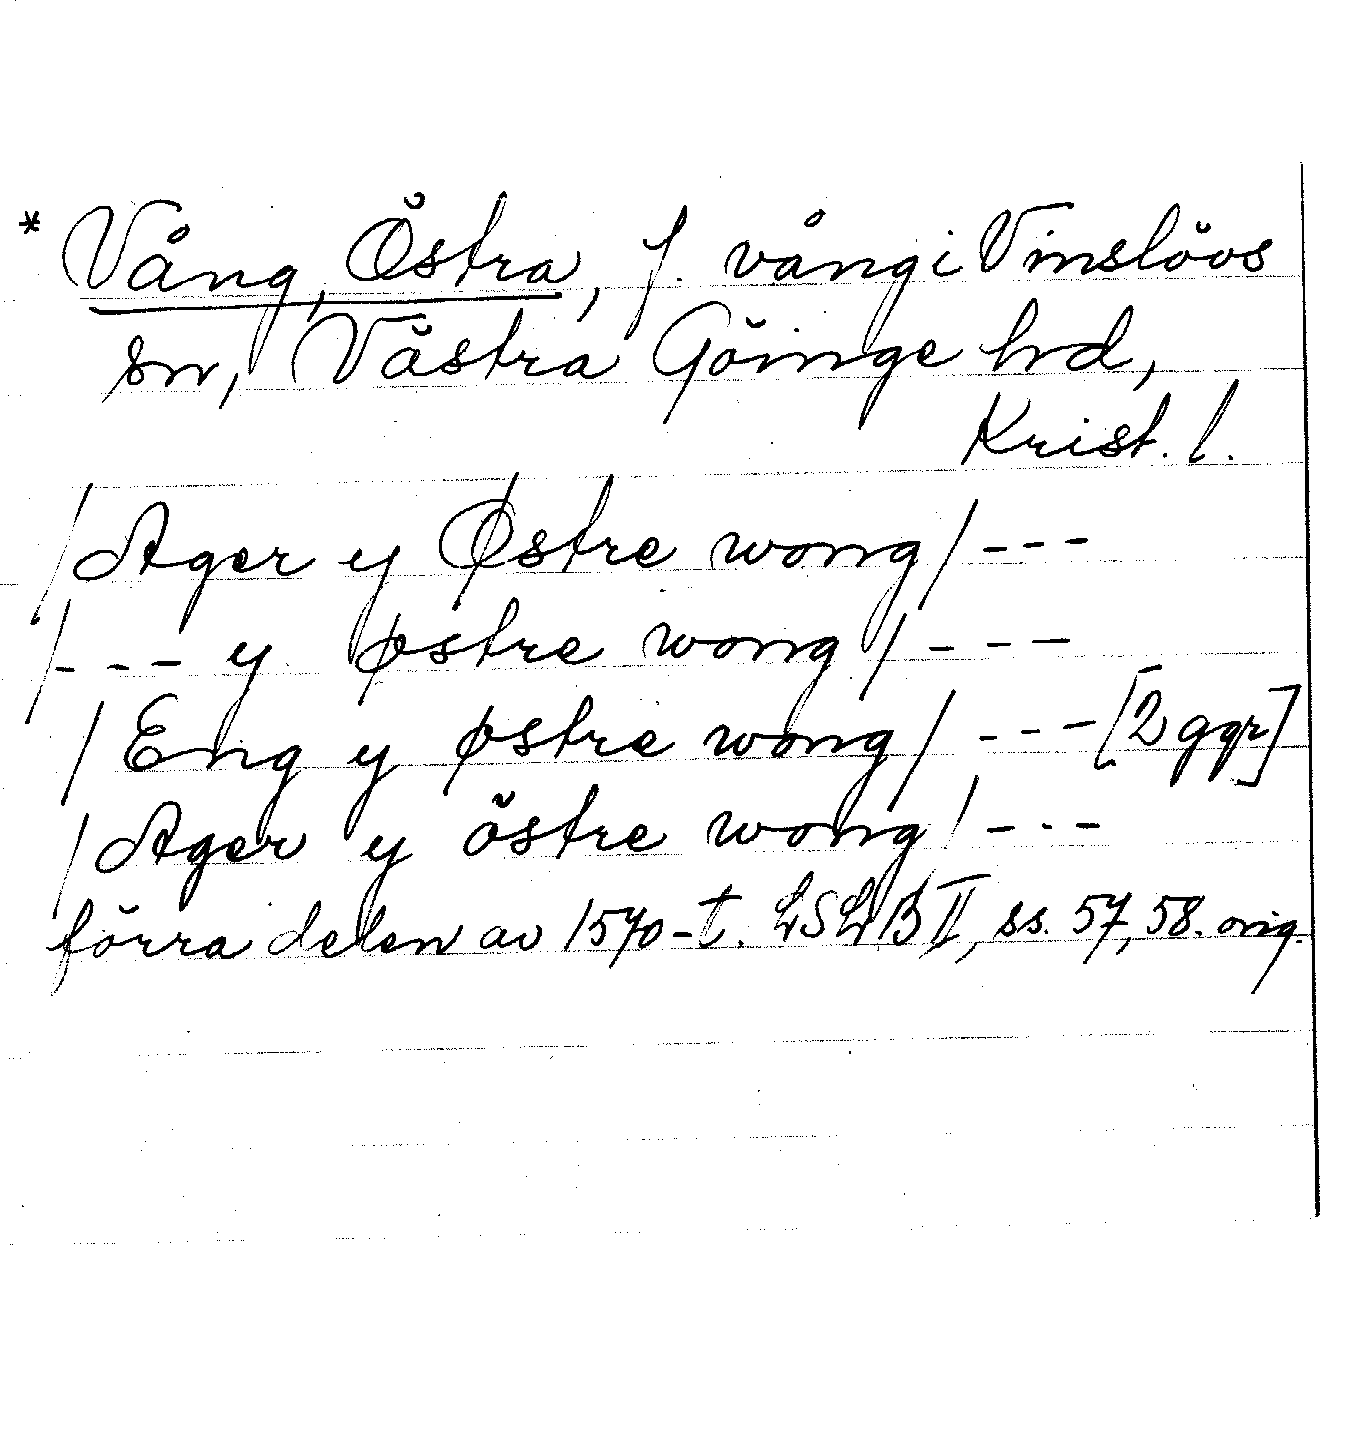 * Vång, Östra, f. vång i Vinslövs
sn, Västra Göinge hrd,
Krist. l.
/Ager y Østre wong/---
/--- y østre wong/---
/Eng y østre wong/---[2 ggr]
/Ager y östre wong/---
förra delen av 1570-t. LSLB II, ss. 57, 58. orig.